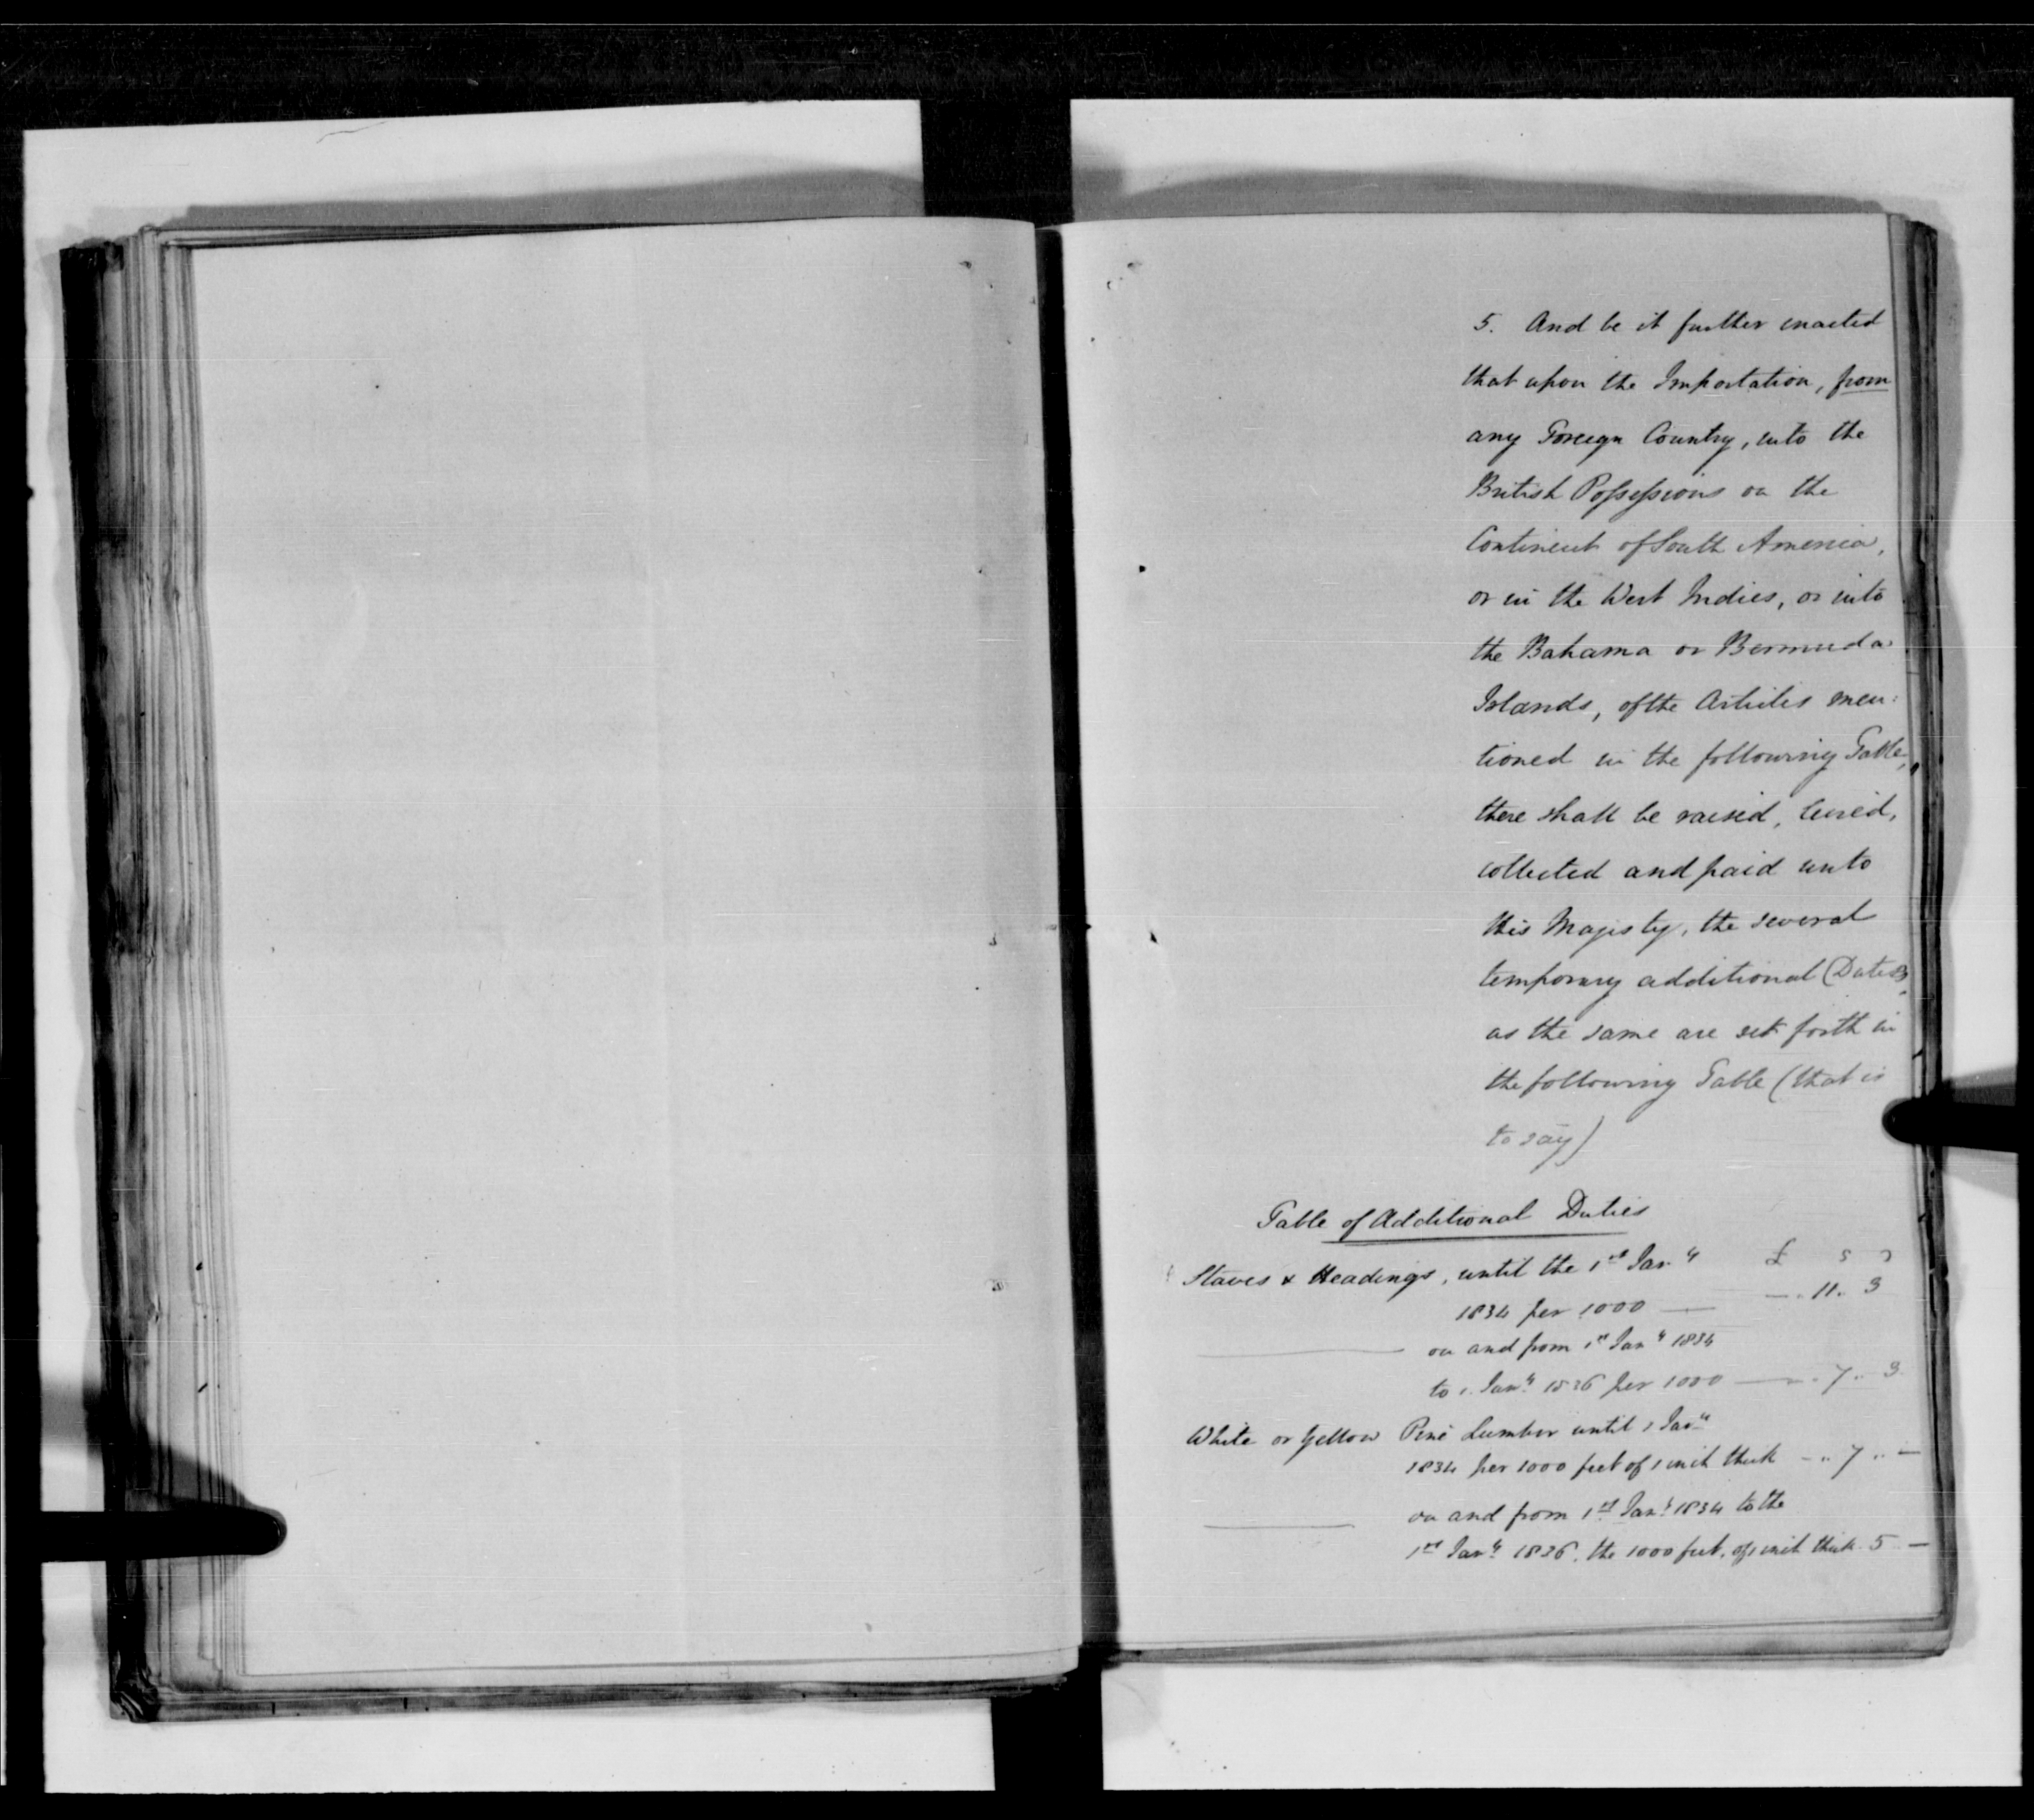 5. And be it further enacted
that upon the Importation, from
any Foreign Country, into the
British Possessions on the
Continent of South America,
or in the West Indies, or into
the Bahama or Bermuda
Islands, of the Articles men:
tioned in the following Table,
there shall be raised, levied,
collected and paid unto
His Majesty, the several
temporary additional Duties,
as the same are set forth in
the following Table (that is
to say)
Table of Additional Duties
Staves & Headings, until the 1st Jany £ s d
1834 per 1000 — — .. 11 .. 3
on and from 1st Jany 1834
to 1. Jany 1836 per 1000 — .. 7 .. 3
White or Yellow Pine Lumber until 1 Jany
1834 per 1000 feet of 1 inch thick — .. 7 .. —
on and from 1st Jany 1834 to the
1st Jany 1836, the 1000 feet, of 1 inch thick 5 —